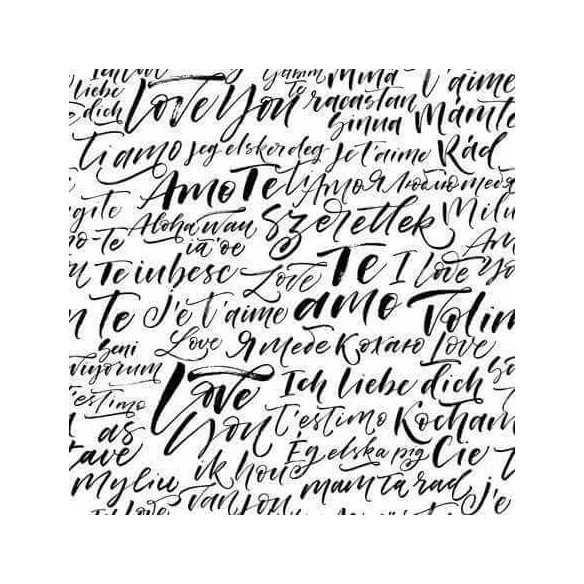 Mma t'aime
liebe Love You te racastan
dich sinna Mamte
Ti amo jeg elsker deg je t'aime Rad
Amo Te Я люблю тебя
Aloha wau Szeretlek Milu
ia 'oe
Te iubesc Love Te I Love Yo
Te J'e t'aime amo Volim
seni Love Я тебе кохаю Love
viyorum Love Ich liebe dich
t'estimo You t'estimo Kocham
as Ég elska þig Cie
tave ik hou
Myliu van jou mamta rad j'e
Love